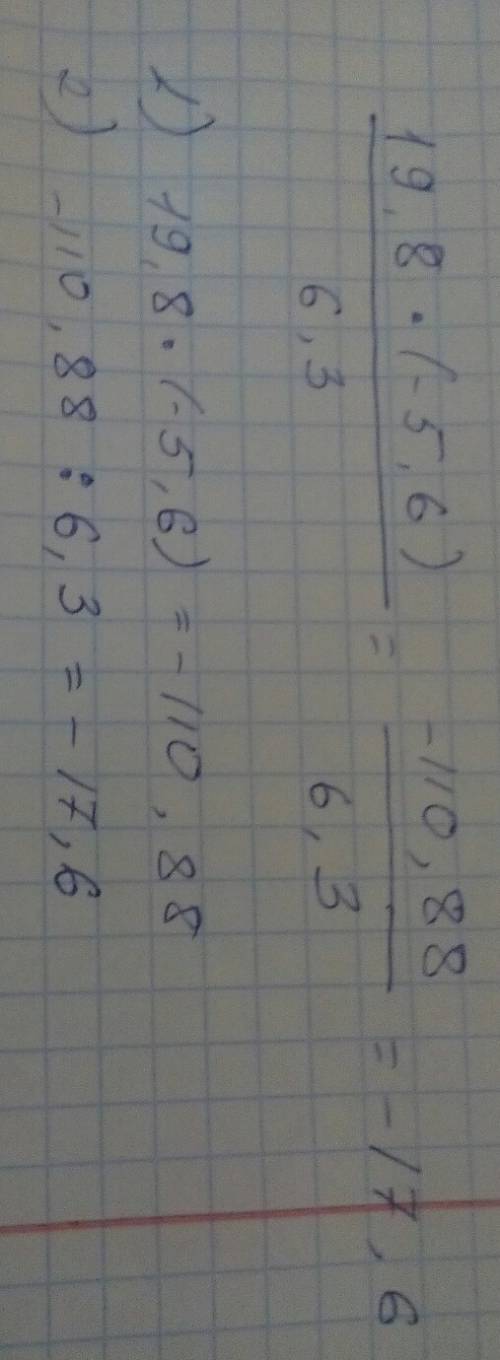 19,8 · (-5,6) / 6,3 = -110,88 / 6,3 = -17,6
1) 19,8 · (-5,6) = -110,88
2) -110,88 : 6,3 = -17,6